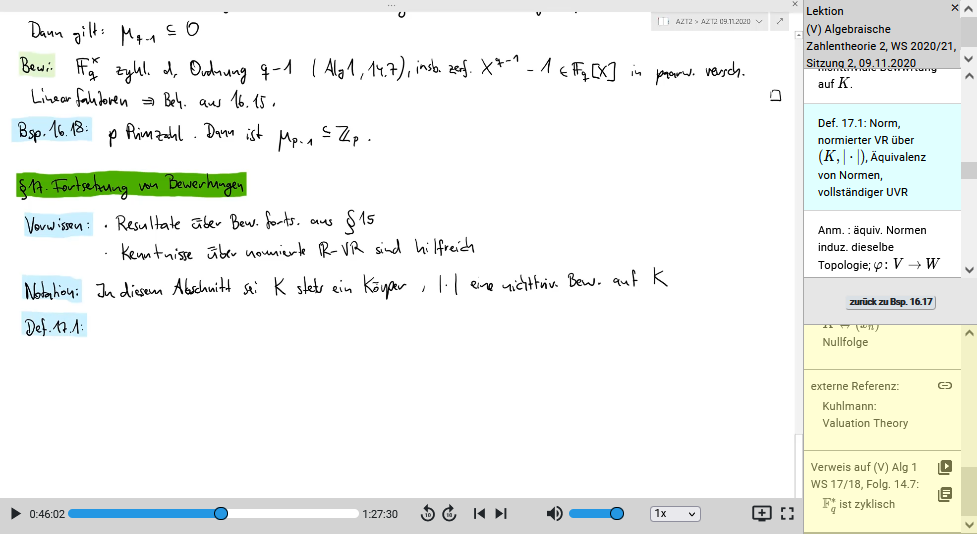 AZT2 > AZT2 09.11.2020
Dann gilt: μ_{q-1} ⊆ O
Bew.: 𝔽_q^× zykl. d. Ordnung q-1 (Alg1, 14.7), insb. zerf. X^{q-1} - 1 ∈ 𝔽_q[X] in paarw. versch.
Linearfaktoren ⇒ Beh. aus 16.15.
Bsp. 16.18: p Primzahl. Dann ist μ_{p-1} ⊆ ℤ_p.
§17. Fortsetzung von Bewertungen
Vorwissen: · Resultate über Bew.forts. aus §15
· Kenntnisse über normierte ℝ-VR sind hilfreich
Notation: In diesem Abschnitt sei K stets ein Körper, |·| eine nichttriv. Bew. auf K
Def. 17.1:
0:46:02
1:27:30
10
10
1x
Lektion
(V) Algebraische
Zahlentheorie 2, WS 2020/21,
Sitzung 2, 09.11.2020
auf K.
Def. 17.1: Norm,
normierter VR über
(K, | · |), Äquivalenz
von Normen,
vollständiger UVR
Anm. : äquiv. Normen
induz. dieselbe
Topologie; φ: V → W
zurück zu Bsp. 16.17
Nullfolge
externe Referenz:
Kuhlmann:
Valuation Theory
Verweis auf (V) Alg 1
WS 17/18, Folg. 14.7:
𝔽_q^* ist zyklisch